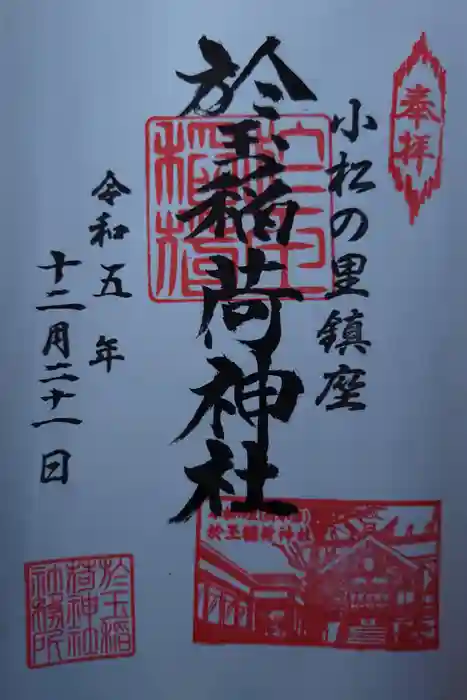 奉拝
小松の里鎮座
於玉稲荷神社
令和五年
十二月二十一日
於玉稲荷神社
於玉稲
荷神社
社務所